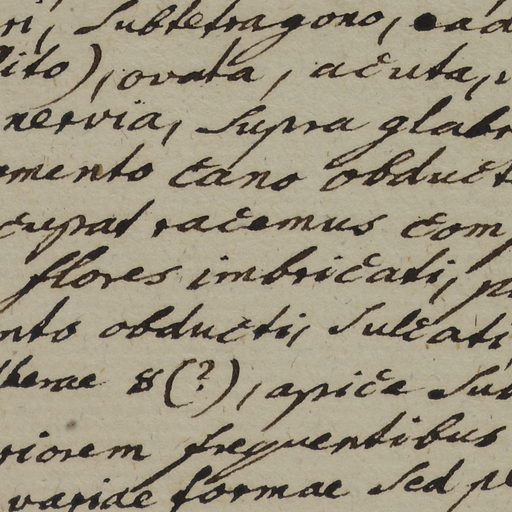 ri, Subtetragono, ead
lito), ovata, acuta,
nervia, supra glabr
mento cano obduct
cupat racemus com
flores imbricati, p
nto obducti, sulcati
therae 8(?), apice su
riorem frequentibus
variae formae sed pe